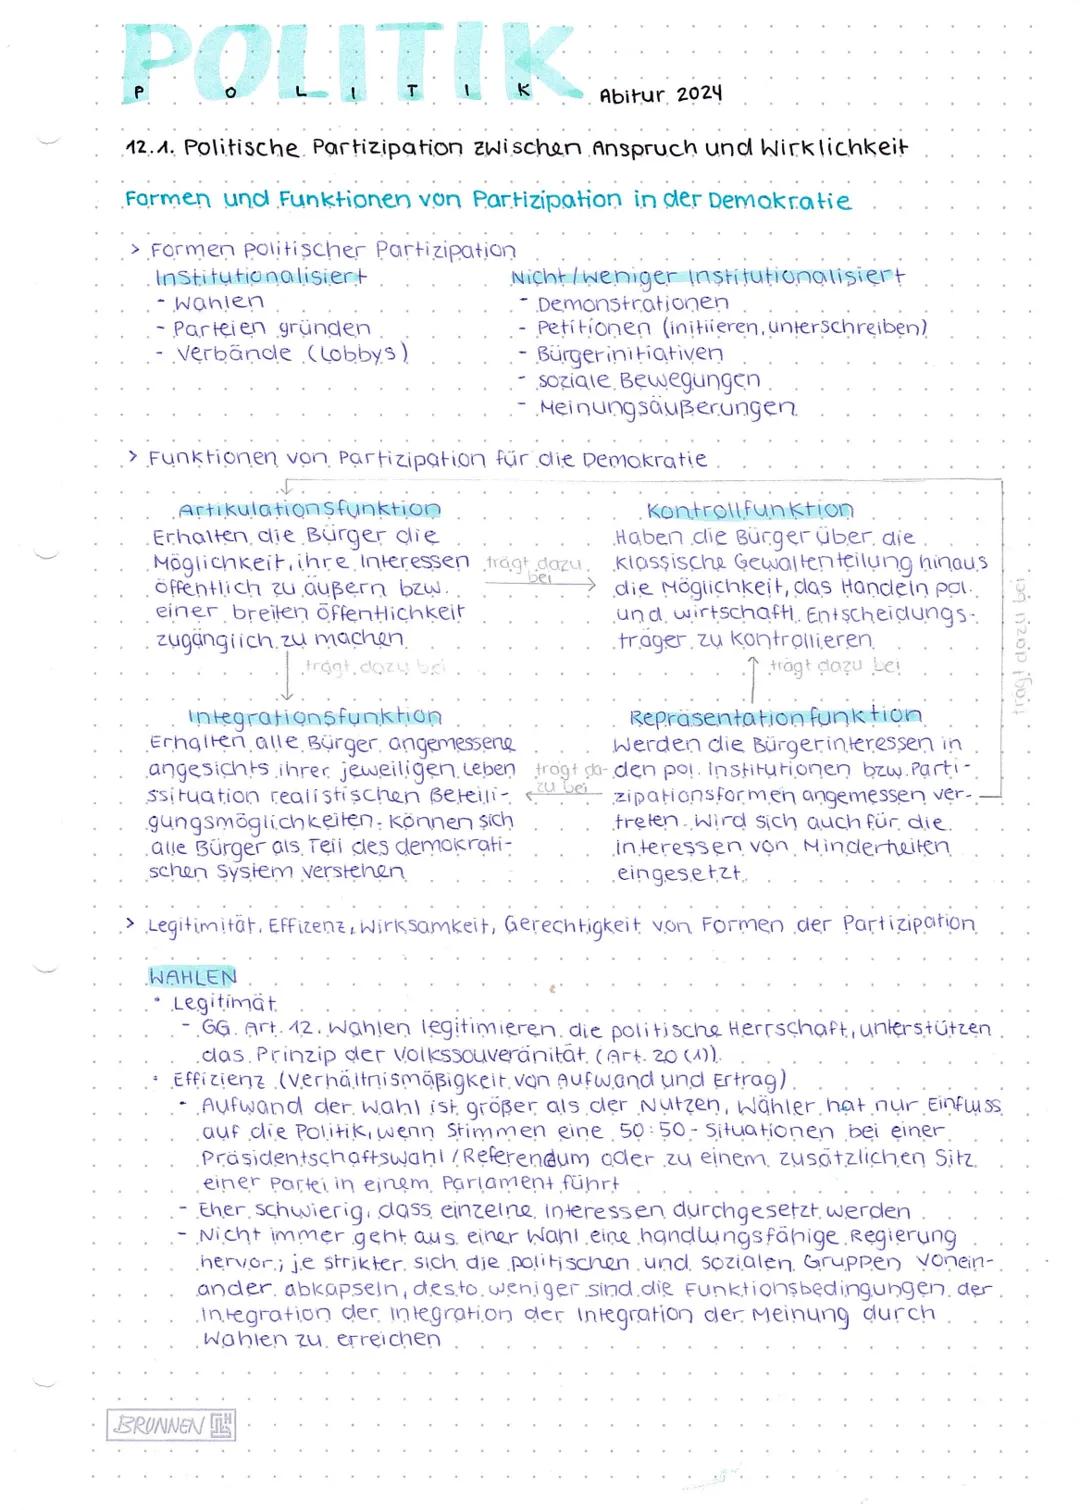 POLITIK
P O L I T I K
Abitur 2024
12.1. Politische Partizipation zwischen Anspruch und Wirklichkeit
Formen und Funktionen von Partizipation in der Demokratie
> Formen politischer Partizipation
Institutionalisiert
- Wahlen
- Parteien gründen
- Verbände (Lobbys)
Nicht/weniger Institutionalisiert
- Demonstrationen
- Petitionen (initiieren, unterschreiben)
- Bürgerinitiativen
- soziale Bewegungen
- Meinungsäußerungen
> Funktionen von Partizipation für die Demokratie
Artikulationsfunktion
Erhalten die Bürger die
Möglichkeit, ihre Interessen
öffentlich zu äußern bzw.
einer breiten öffentlichkeit
zugänglich zu machen
trägt dazu
bei
Kontrollfunktion
Haben die Bürger über die
klassische Gewaltenteilung hinaus
die Möglichkeit, das Handeln pol.
und wirtschaftl. Entscheidungs-
träger zu kontrollieren
trägt dazu bei
trägt dazu bei
trägt dazu bei
Integrationsfunktion
Erhalten alle Bürger angemessene
angesichts ihrer jeweiligen Leben
ssituation realistischen Beteili-
gungsmöglichkeiten. Können sich
alle Bürger als Teil des demokrati-
schen System verstehen
trägt da-
zu bei
Repräsentationfunktion
Werden die Bürgerinteressen in
den pol. Institutionen bzw. Parti-
zipationsformen angemessen ver-
treten. Wird sich auch für die
interessen von Minderheiten
eingesetzt.
> Legitimität, Effizenz, Wirksamkeit, Gerechtigkeit von Formen der Partizipation
WAHLEN
• Legitimät
- GG. Art. 12. Wahlen legitimieren die politische Herrschaft, unterstützen
das Prinzip der Volkssouveränität (Art. 20 (1)).
• Effizienz (Verhältnismäßigkeit von Aufwand und Ertrag)
- Aufwand der Wahl ist größer als der Nutzen, Wähler hat nur Einfluss
auf die Politik, wenn Stimmen eine 50:50-Situationen bei einer
Präsidentschaftswahl/Referendum oder zu einem zusätzlichen Sitz
einer Partei in einem Parlament führt
- Eher schwierig, dass einzelne Interessen durchgesetzt werden
- Nicht immer geht aus einer Wahl eine handlungsfähige Regierung
hervor; je strikter sich die politischen und sozialen Gruppen vonein-
ander abkapseln, desto weniger sind die Funktionsbedingungen der
Integration der Integration der Integration der Meinung durch
Wahlen zu erreichen
BRUNNEN